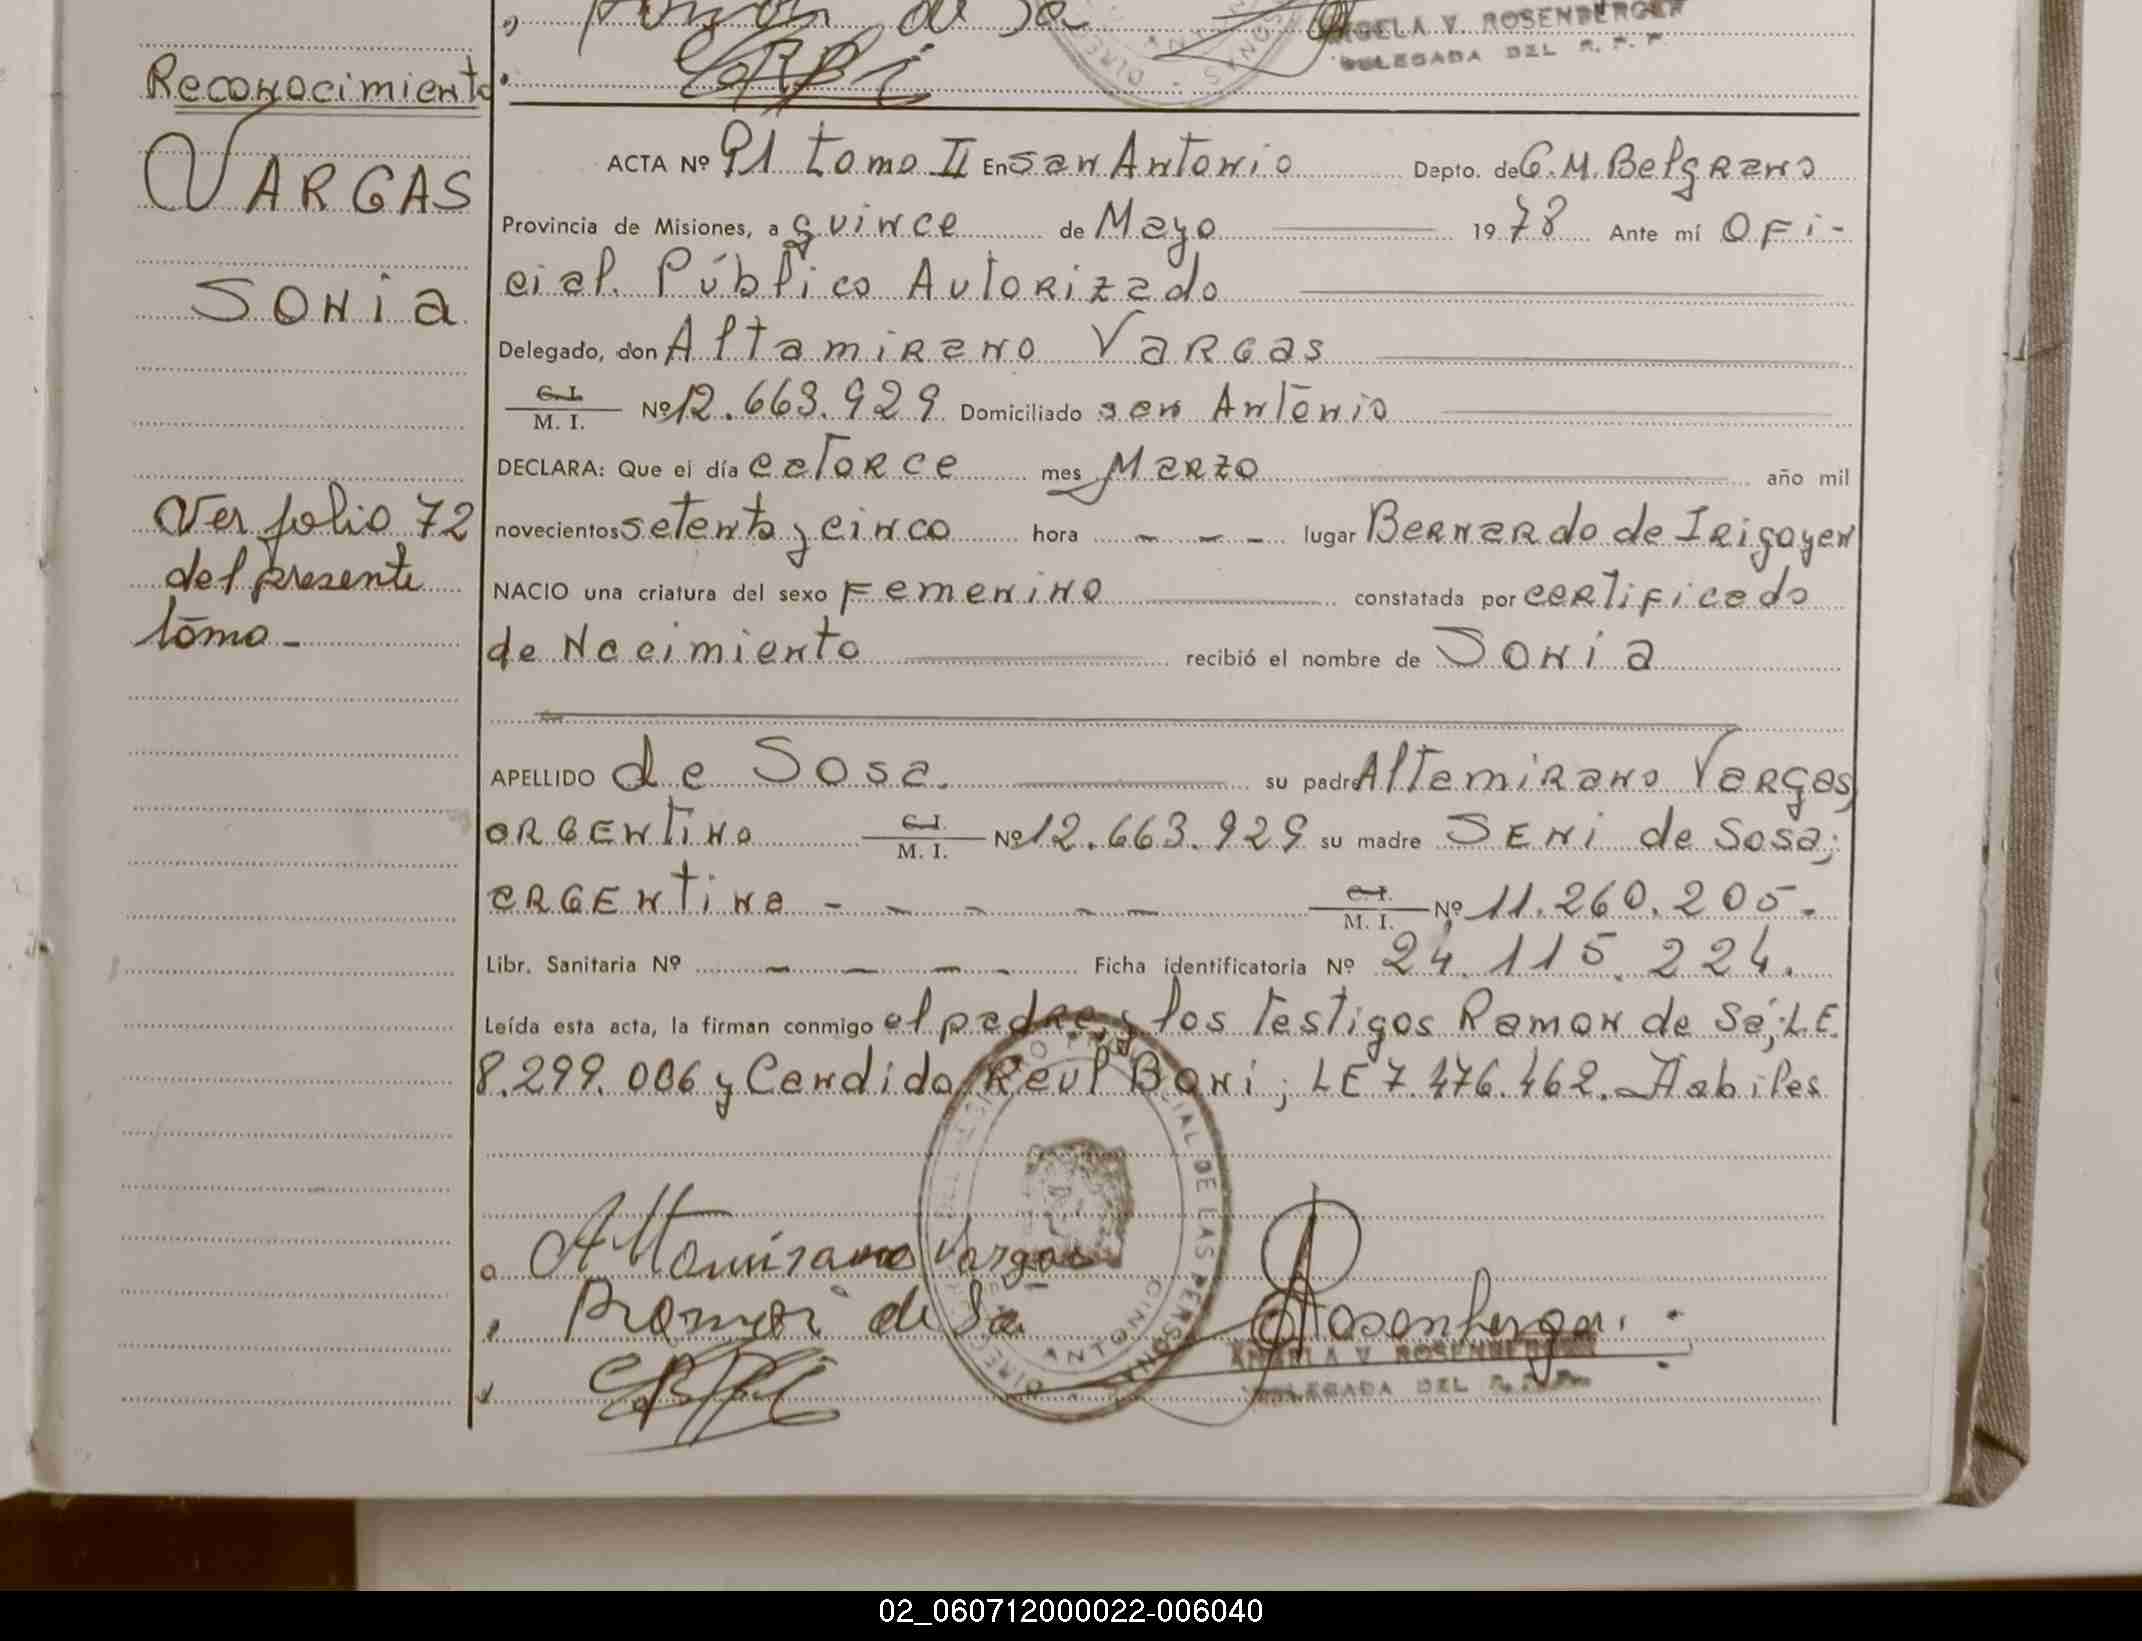 Ramon de Sa
ANGELA V. ROSENBERGER
DELEGADA DEL R. P. P.
Reconocimiento
VARGAS
Sonia
Ver folio 72
del presente
tomo -
ACTA Nº 91 tomo II En San Antonio Depto. de G. M. Belgrano
Provincia de Misiones, a quince de Mayo 1978 Ante mí Ofi-
cial Público Autorizado
Delegado, don Altamirano Vargas
C. I. M. I. Nº 12.663.929 Domiciliado san Antonio
DECLARA: Que el día catorce mes Marzo año mil
novecientos setenta y cinco hora - - - lugar Bernardo de Irigoyen
NACIO una criatura del sexo Femenino constatada por certificado
de Nacimiento recibió el nombre de Sonia
APELLIDO de Sosa. su padre Altamirano Vargas,
argentino C. I. M. I. Nº 12.663.929 su madre Seni de Sosa;
argentina - - - - - C. I. M. I. Nº 11.260.205.
Libr. Sanitaria Nº - - - - Ficha identificatoria Nº 24.115.224.
Leída esta acta, la firman conmigo el padre y los testigos Ramon de Sá; L.E.
8.299.006 y Candido Raul Boni; LE 7.476.462. Habiles
Altamirano Vargas
Ramon de Sa
Rosenberger
ANGELA V. ROSENBERGER
DELEGADA DEL R. P. P.
02_060712000022-006040